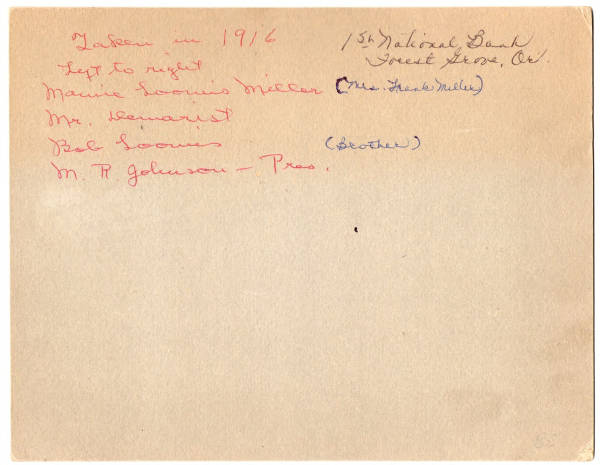 Taken in 1916
1st National Bank
Forest Grove, Or.
Left to right
Mamie Loomis Miller (Mrs. Frank Miller)
Mr. Demarist
Bob Loomis (Brother)
M. R Johnson – Pres.